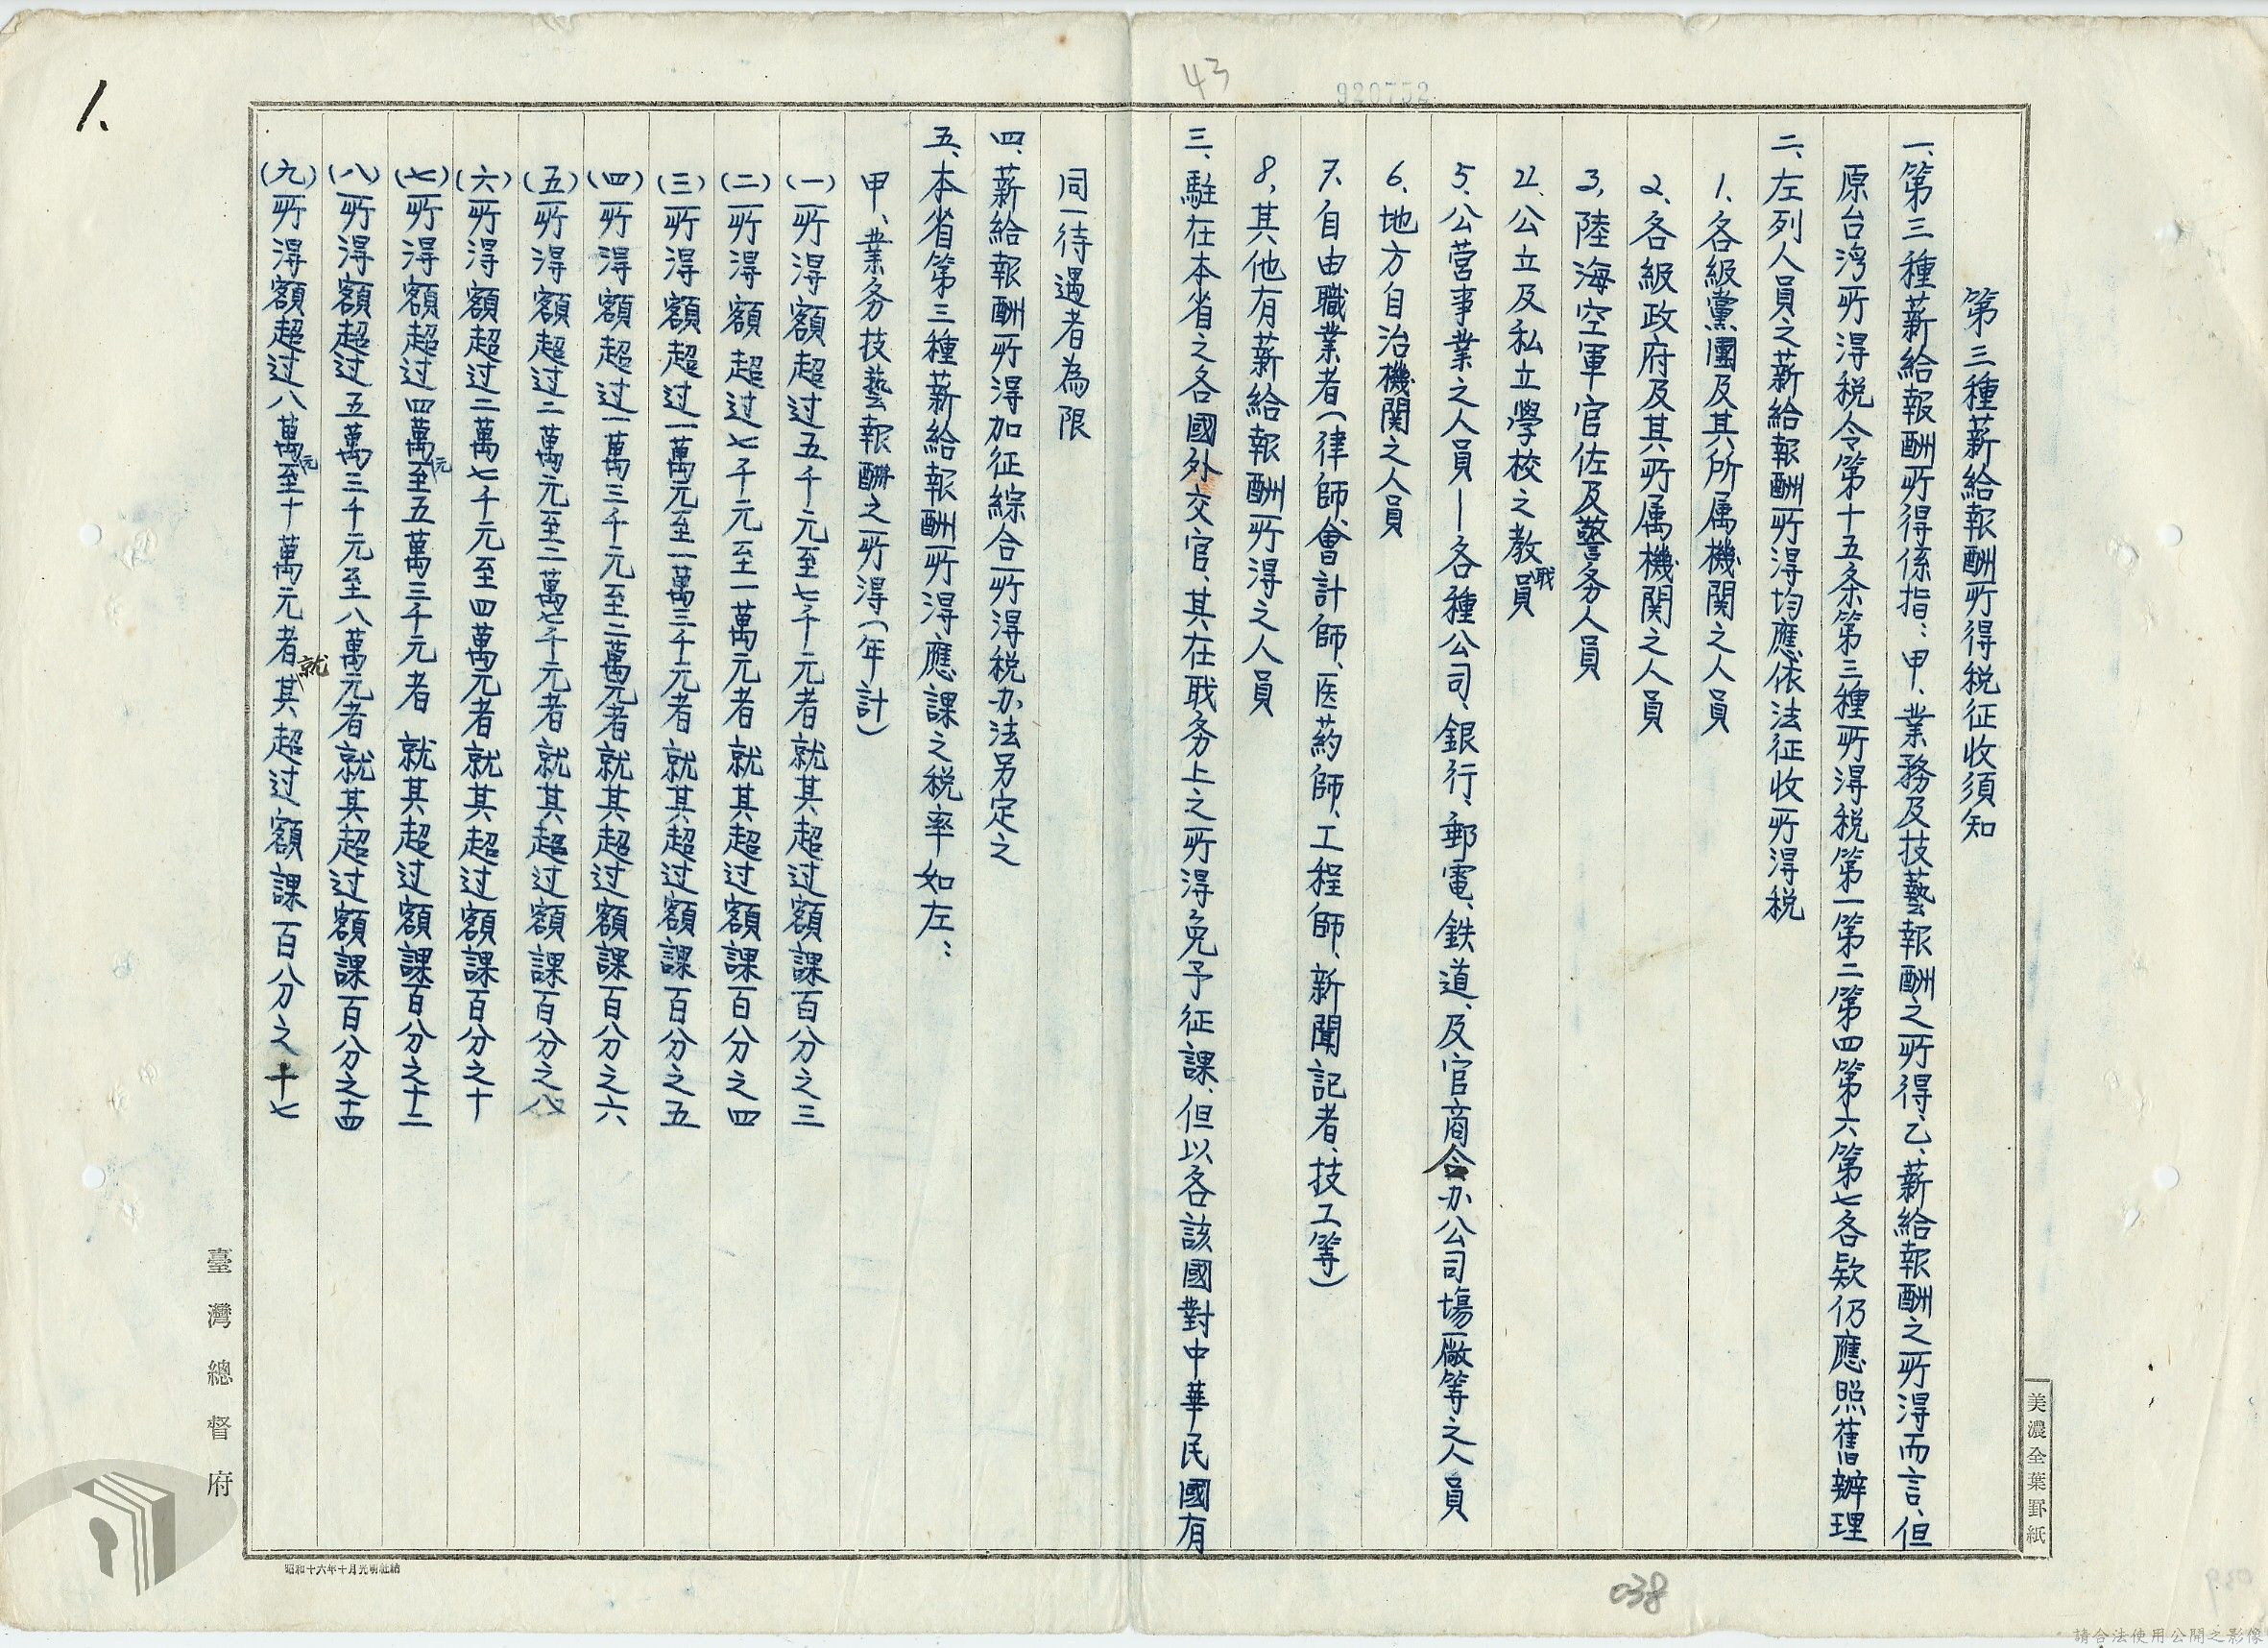 43
920752
1.
第三種薪給報酬所得税征收須知
一、第三種薪給報酬所得係指：甲、業務及技藝報酬之所得、乙、薪給報酬之所得而言、但
原台湾所得税令第十五条第三種所得税第一第二第四第六第七各欵仍應照舊辦理
二、左列人員之薪給報酬所得均應依法征收所得税
1、各級黨團及其所属機関之人員
2、各級政府及其所属機関之人員
3、陸海空軍官佐及警务人員
4、公立及私立學校之教職員
5、公营事業之人員—各種公司、銀行、郵電、鉄道、及官商合办公司場廠等之人員
6、地方自治機関之人員
7、自由職業者(律師、會計師、医葯師、工程師、新聞記者、技工等)
8、其他有薪給報酬所得之人員
三、駐在本省之各國外交官、其在戝务上之所得免予征課、但以各該國對中華民國有
同一待遇者為限
四、薪給報酬所得加征綜合所得税办法另定之
五、本省第三種薪給報酬所得應課之税率如左：
甲、業务技藝報酬之所得(年計)
(一)所得額超过五千元至七千元者就其超过額課百分之三
(二)所得額超过七千元至一萬元者就其超过額課百分之四
(三)所得額超过一萬元至一萬三千元者就其超过額課百分之五
(四)所得額超过一萬三千元至二萬元者就其超过額課百分之六
(五)所得額超过二萬元至二萬七千元者就其超过額課百分之八
(六)所得額超过二萬七千元至四萬元者就其超过額課百分之十
(七)所得額超过四萬元至五萬三千元者就其超过額課百分之十二
(八)所得額超过五萬三千元至八萬元者就其超过額課百分之十四
(九)所得額超过八萬元至十萬元者就其超过額課百分之十七
臺灣總督府
美濃全葉罫紙
昭和十六年十月光明社納
038
請合法使用公開之影像